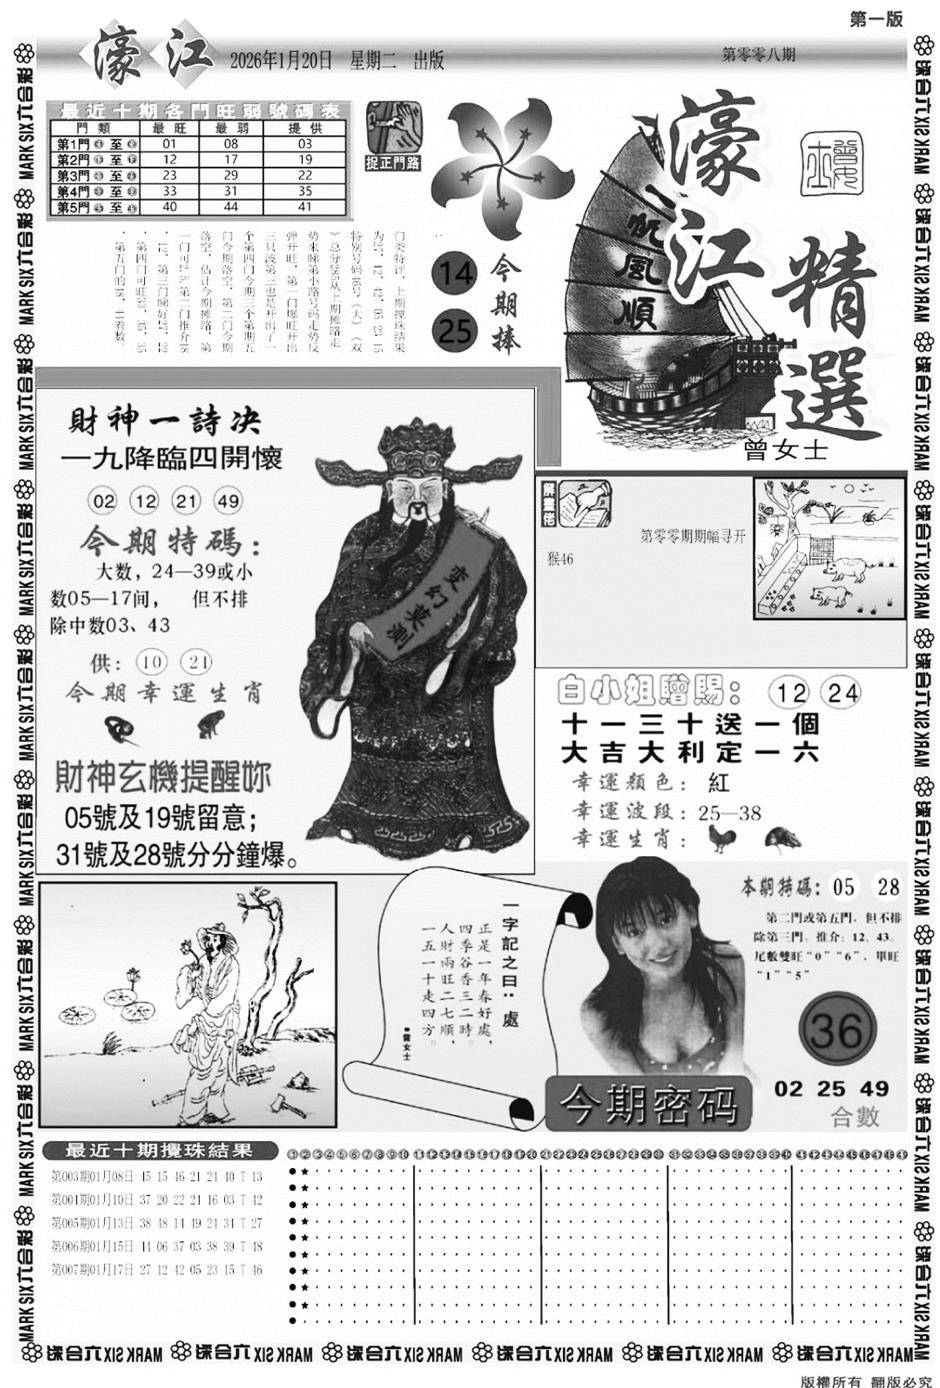 第一版
濠江
2026年1月20日 星期二 出版
第零零八期
最近十期各門旺弱號碼表
門類 最旺 最弱 提供
第1門 至 01 08 03
第2門 至 12 17 19
第3門 至 23 29 22
第4門 至 33 31 35
第5門 至 40 44 41
捉正門路
14
25
今期捧
濠江
精選
一帆風順
曾女士
门类特评，上期搅珠结果
为27、12、42、05、23、15
特别号码46号（大）（双
势来睇第小路号码走势反
弹开旺，第一门爆旺开出
三只波第三也是开出了一
个第四门今期三个第期五
门今期落空，第二门今期
落空，估计今期摊路，第
財神一詩决
一九降臨四開懷
02 12 21 49
今期特碼：
大数，24—39或小
数05—17间， 但不排
除中数03、43
供：10 21
今期幸運生肖
財神玄機提醒妳
05號及19號留意；
31號及28號分分鐘爆。
变幻莫测
第零零期期幅寻开
猴46
白小姐贈賜：12 24
十一三十送一個
大吉大利定一六
幸運顏色：紅
幸運波段：25—38
幸運生肖：
一字記之曰：處
正是一年春好處，
四季谷香三二時。
人財兩旺二七順，
一五一十走四方。
■曾女士
本期特碼：05 28
第二門或第五門，但不排
除第三門。推介：12、43。
尾數雙旺“0”“6”，單旺
“1”“5”
36
02 25 49
合數
今期密码
最近十期攪珠結果
第003期01月08日 45 15 46 21 24 40 T 13
第004期01月10日 37 20 22 21 16 03 T 42
第005期01月13日 38 48 14 49 24 31 T 27
第006期01月15日 44 06 37 03 38 39 T 48
第007期01月17日 27 12 42 05 23 15 T 46
MARK SIX 六合彩
版權所有 翻版必究